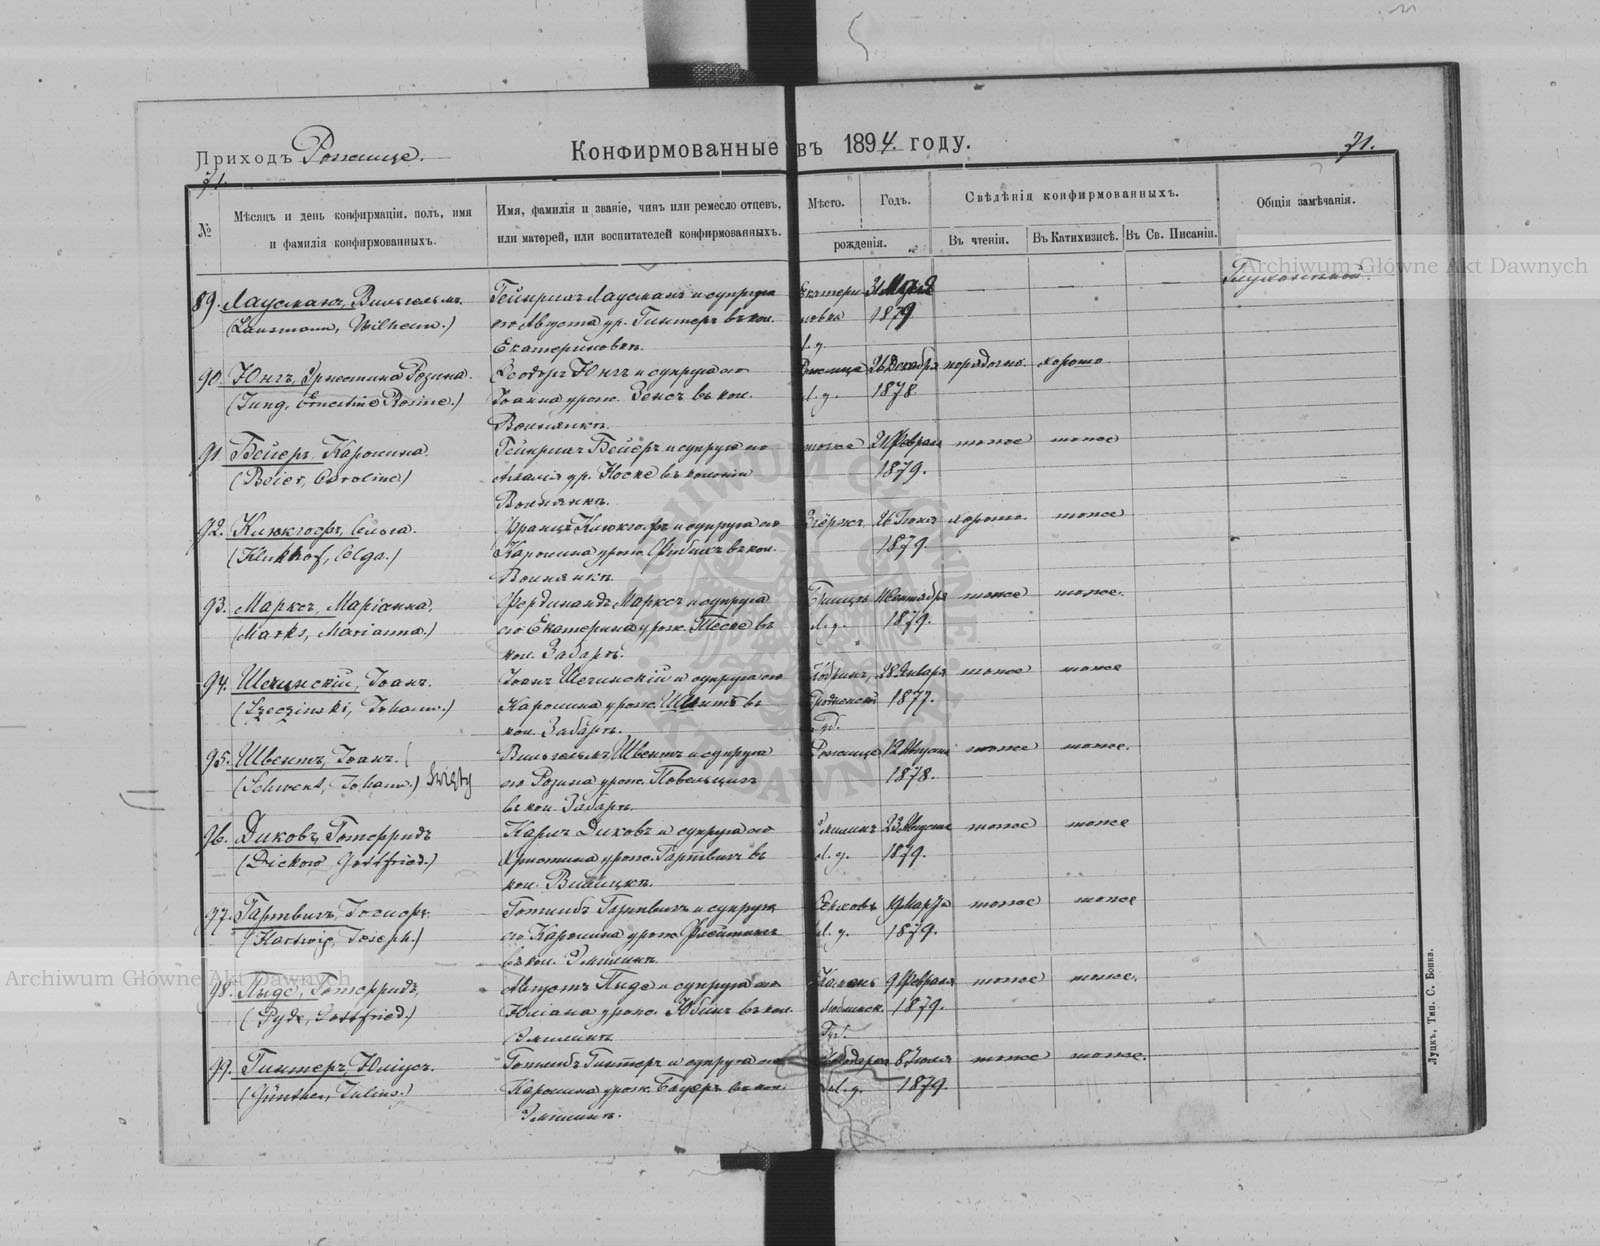 Приходъ Рожище.
Конфирмованные въ 1894. году.
71.
71.
№
Мѣсяцъ и день конфирмаціи, полъ, имя
и фамилія конфирмованныхъ.
Имя, фамилія и званіе, чинъ или ремесло отцевъ,
или матерей, или воспитателей конфирмованныхъ.
Мѣсто.
Годъ.
рожденія.
Свѣдѣнія конфирмованныхъ.
Въ чтеніи.
Въ Катихизисѣ.
Въ Св. Писаніи.
Общія замѣчанія.
Archiwum Główne Akt Dawnych
89. Лаусманъ, Вильгельмъ.
(Lausmann, Wilhelm.)
Гейнрихъ Лаусманъ и супруга
его Августа ур. Гинтеръ въ кол.
Екатериновкѣ.
Екатери-
новка
л. у.
31 Мая
1879.
Глухонѣмой
90. Юнгъ, Эрнестина Розина.
(Jung, Ernestine Rosine.)
Теодоръ Юнгъ и супруга его
Іоанна урож. Зенсъ въ кол.
Волнянкѣ.
Рожище
л. у.
26 Декабря
1878.
порядочно. хорошо
91 Бейеръ, Каролина.
(Beier, Caroline)
Гейнрихъ Бейеръ и супруга его
ур. Носке въ колоніи
Волнянкѣ.
тоже
21 Февраля
1879.
тоже тоже
92. Клюкгофъ, Ольга.
(Klukhof, Olga.)
Францъ Клюкгофъ и супруга его
Каролина урож. Фибихъ въ кол.
Волнянкѣ.
Згержъ
26 Іюня
1879.
хорошо. тоже
93. Марксъ, Маріанна,
(Marks, Marianna.)
Фердинандъ Марксъ и супруга
его Екатерина урож. Теске въ
кол. Забарѣ.
л. у.
1879.
тоже тоже.
94. Шечинскій, Іоанъ.
(Szeczinski, Johann.)
Іоанъ Шечинскій и супруга его
Каролина урож. Шмитъ въ
кол. Забарѣ.
Кобринъ,
Гродненской
Губ.
28 Января
1877.
тоже тоже
95. Швентъ, Іоанъ. (
(Schwent, Johann.) Święty
Вильгельмъ Швентъ и супруга
его Розина урож.
въ кол. Забарѣ.
Рожище
12 Августа
1878.
тоже тоже.
96. Диковъ, Готфридъ
(Dickow Gottfried.)
Карлъ Диковъ и супруга его
Христина урож. Гартвигъ въ
кол.
Эмилинъ
л. у.
23 Августа
1879.
тоже тоже
97. Гартвигъ, Іосифъ.
(Hartwig, Joseph.)
Готлибъ Гартвигъ и супруга
его Каролина урож.
въ кол. Эмилинѣ.
л. у.
19 Марта
1879.
тоже тоже
Archiwum Główne Akt Dawnych
98. Пыде, Готфридъ,
(Pyde, Gottfried.)
Августъ Пыде и супруга его
Юліана урож. въ кол.
Эмилинѣ
Люблинск.
Губ.
9 Февраля
1879.
тоже тоже.
99. Гинтеръ, Юліусъ.
(Günther, Julius.)
Готлибъ Гинтеръ и супруга его
Каролина урож. Бауеръ въ кол.
Эмилинѣ.
л. у.
8 Іюля
1879.
тоже тоже.
Луцкъ, Тип. С. Бонка.
ARCHIWUM GŁÓWNE AKT DAWNYCH